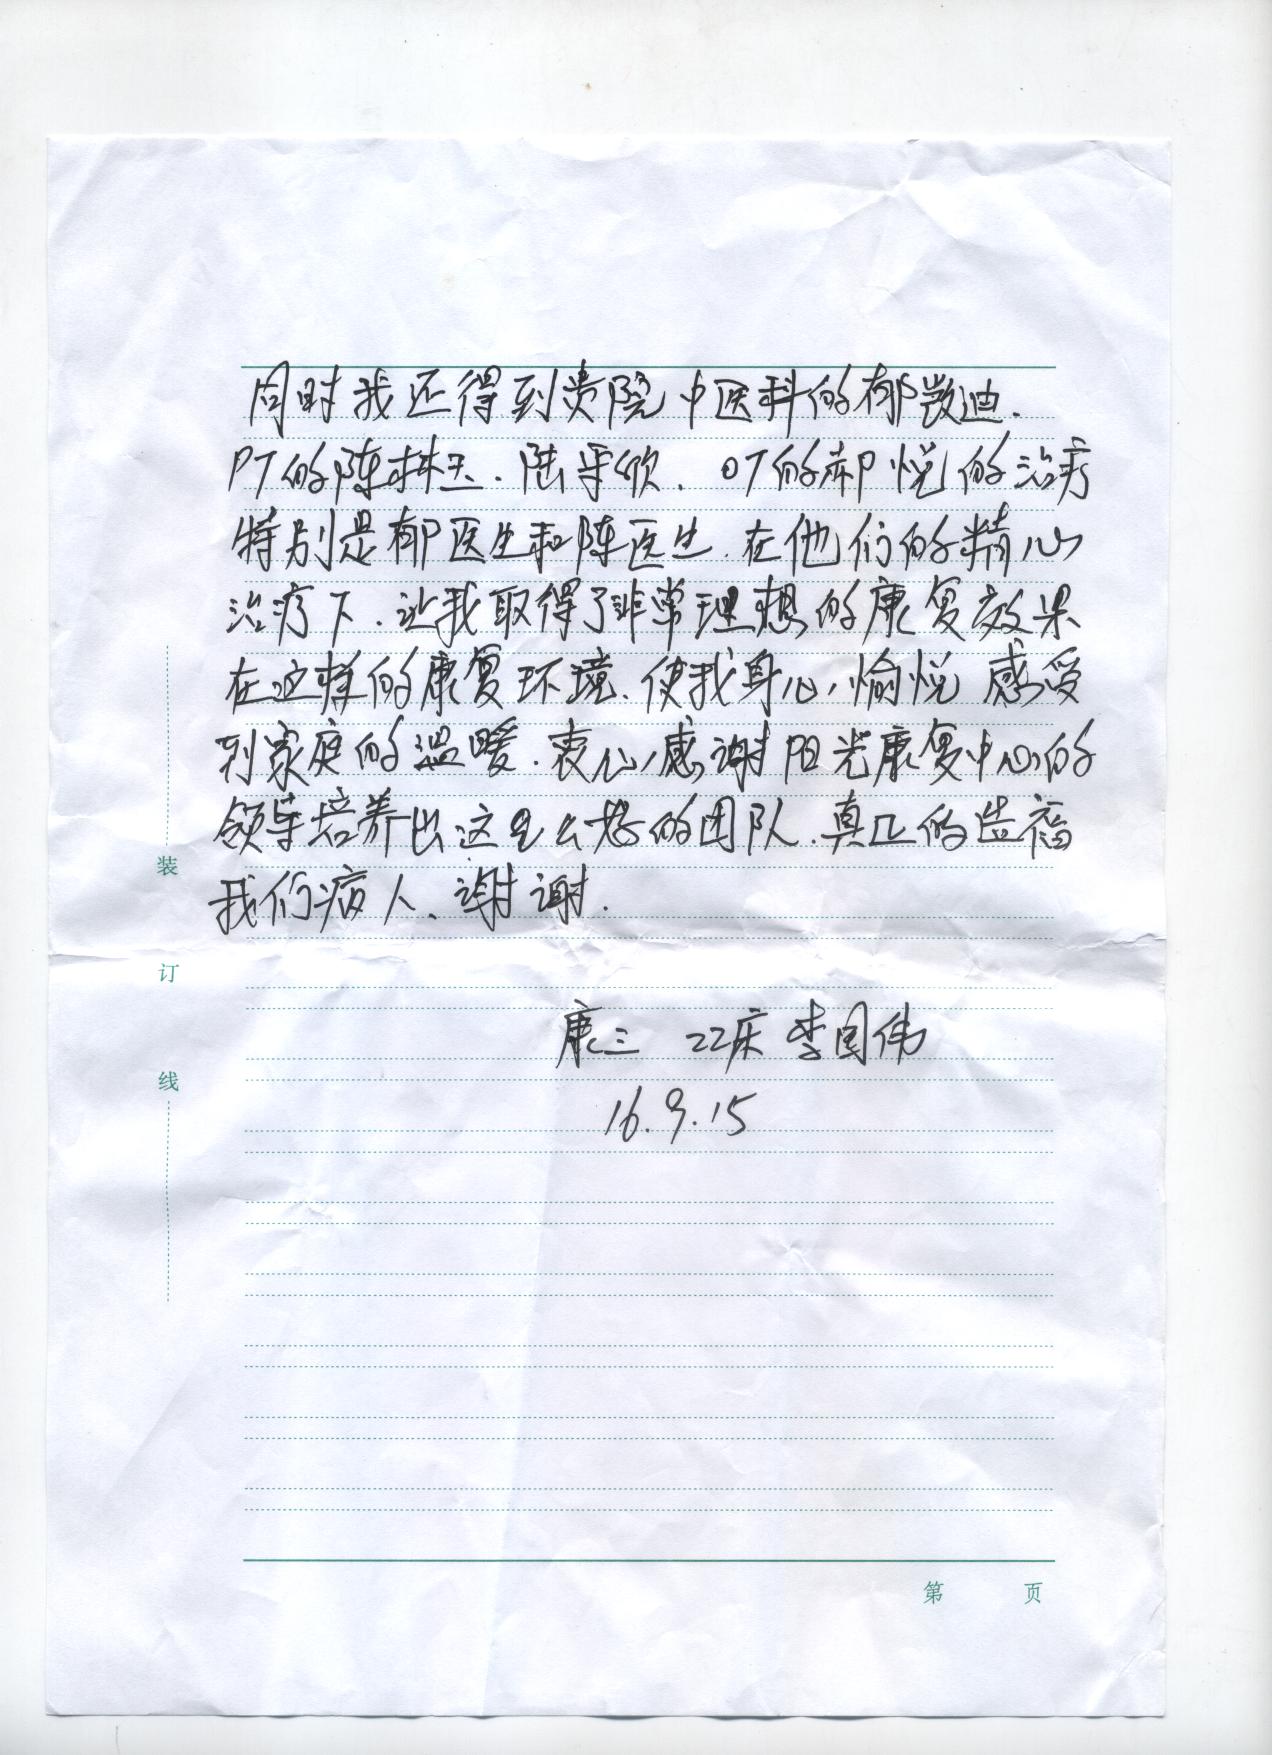 同时我还得到贵院中医科的郁数迪.
PT的陈林玉.陆平欣.OT的郝悦的治疗
特别是郁医生和陈医生.在他们的精心
治疗下.让我取得了非常理想的康复效果
在这样的康复环境.使我身心愉悦感受
到家庭的温暖.衷心感谢阳光康复中心的
领导培养出这么么好的团队.真正的造福
我们病人.谢谢.
康三 22床 李国伟
16.9.15
装
订
线
第 页